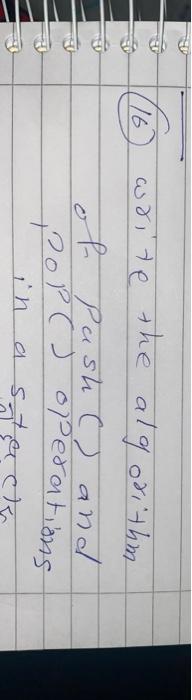 16 write the algorithm
of push() and
pop() operations
in a stack